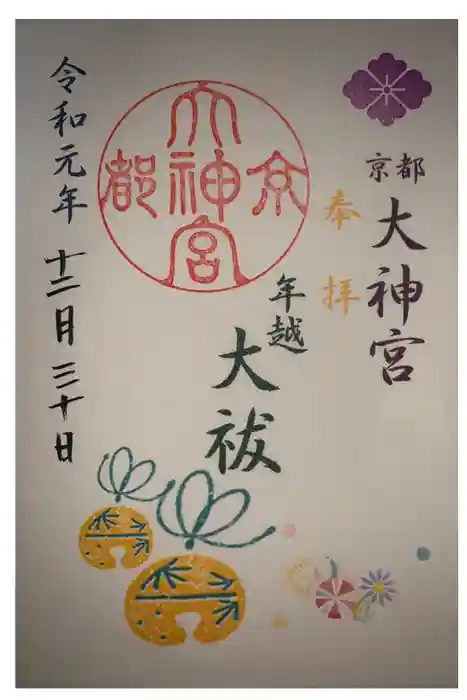 京都
大神宮
奉拝
年越
大祓
京都
大神宮
令和元年十二月三十日